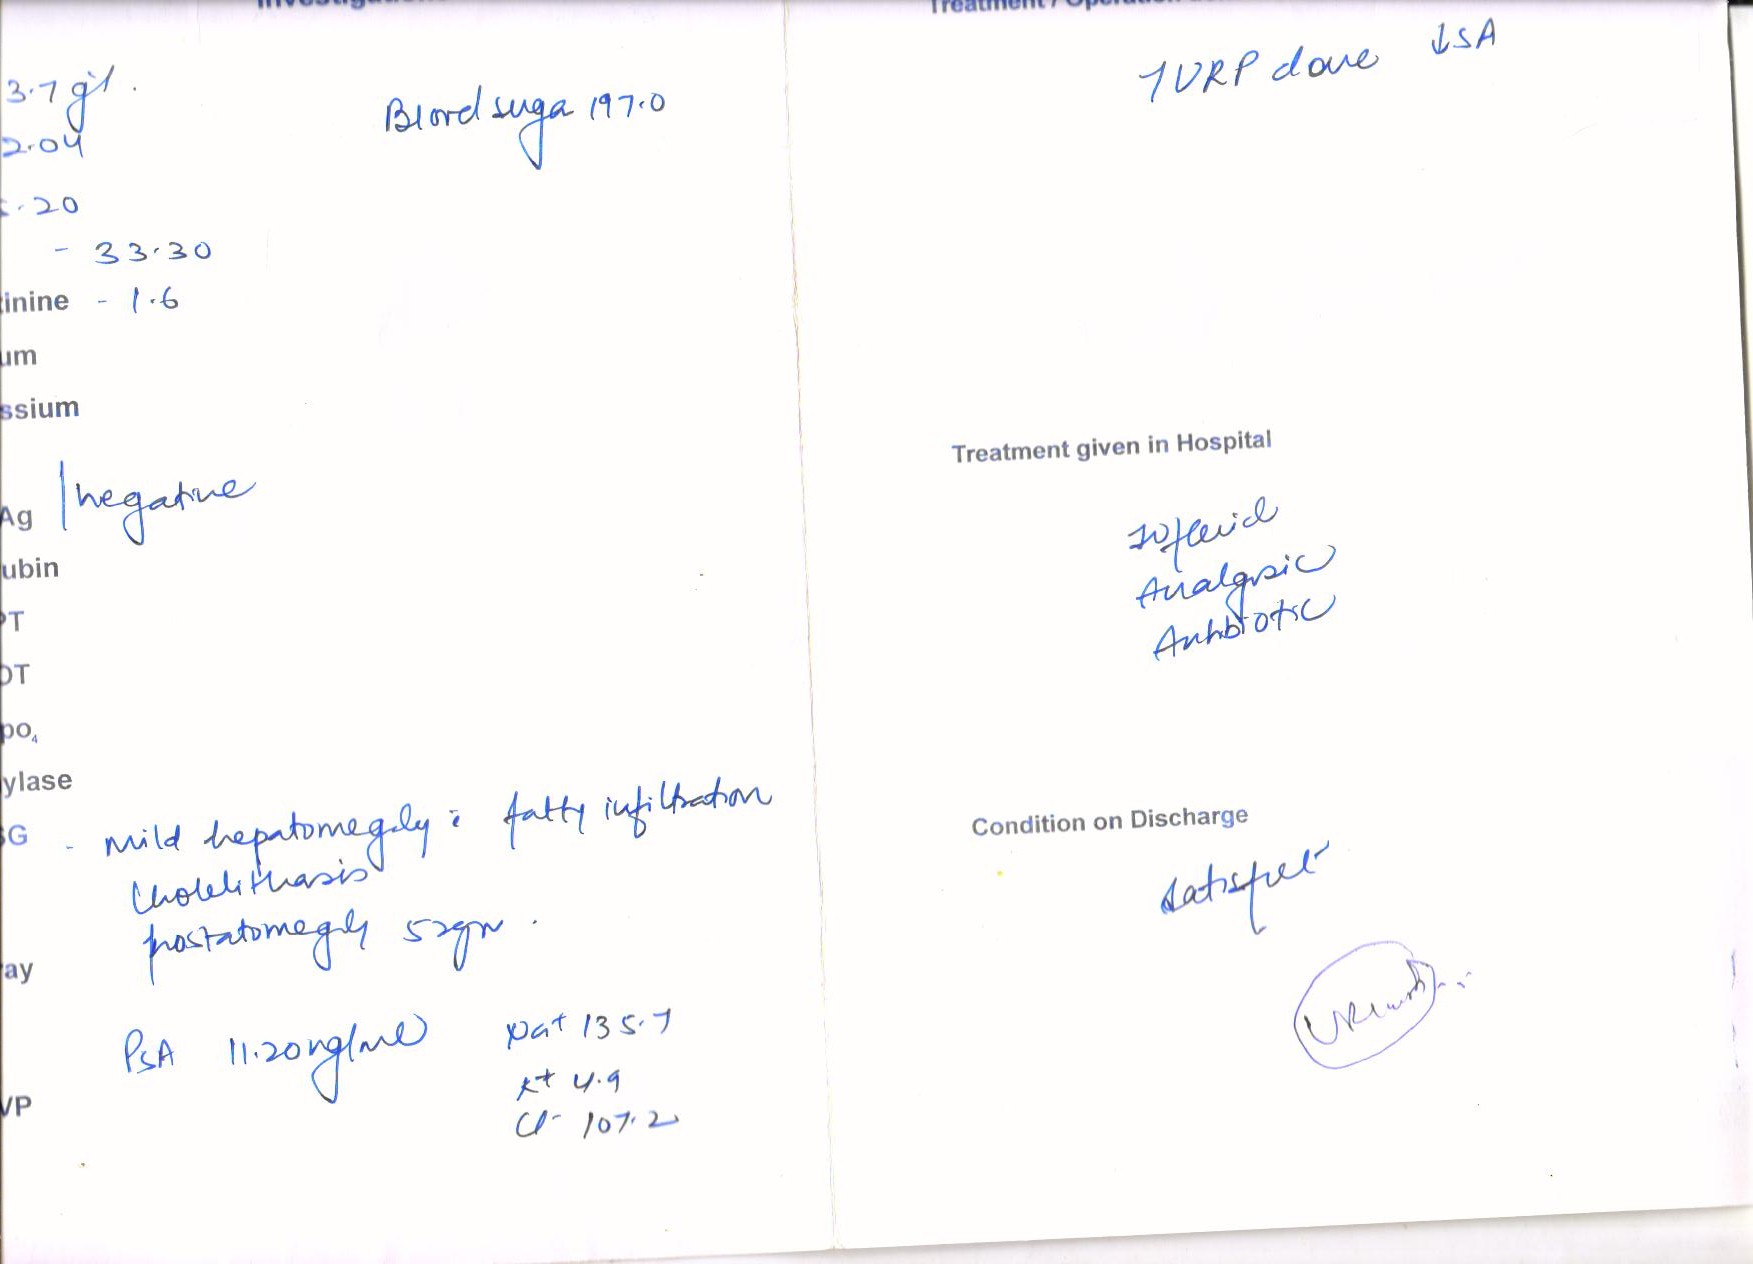 3.7 g%.
2.04
.20
- 33.30
inine - 1.6
um
ssium
Ag negative
ubin
PT
OT
po4
ylase
Blood suga 197.0
G - mild hepatomegaly c fatty infiltration
Cholelithasis
prostatomegly 52gm.
ay
PSA 11.20ng/ml
Na+ 135.7
K+ 4.9
Cl- 107.2
VP
TURP done ↓SA
Treatment given in Hospital
IVfluid
Analgesic
Antibiotic
Condition on Discharge